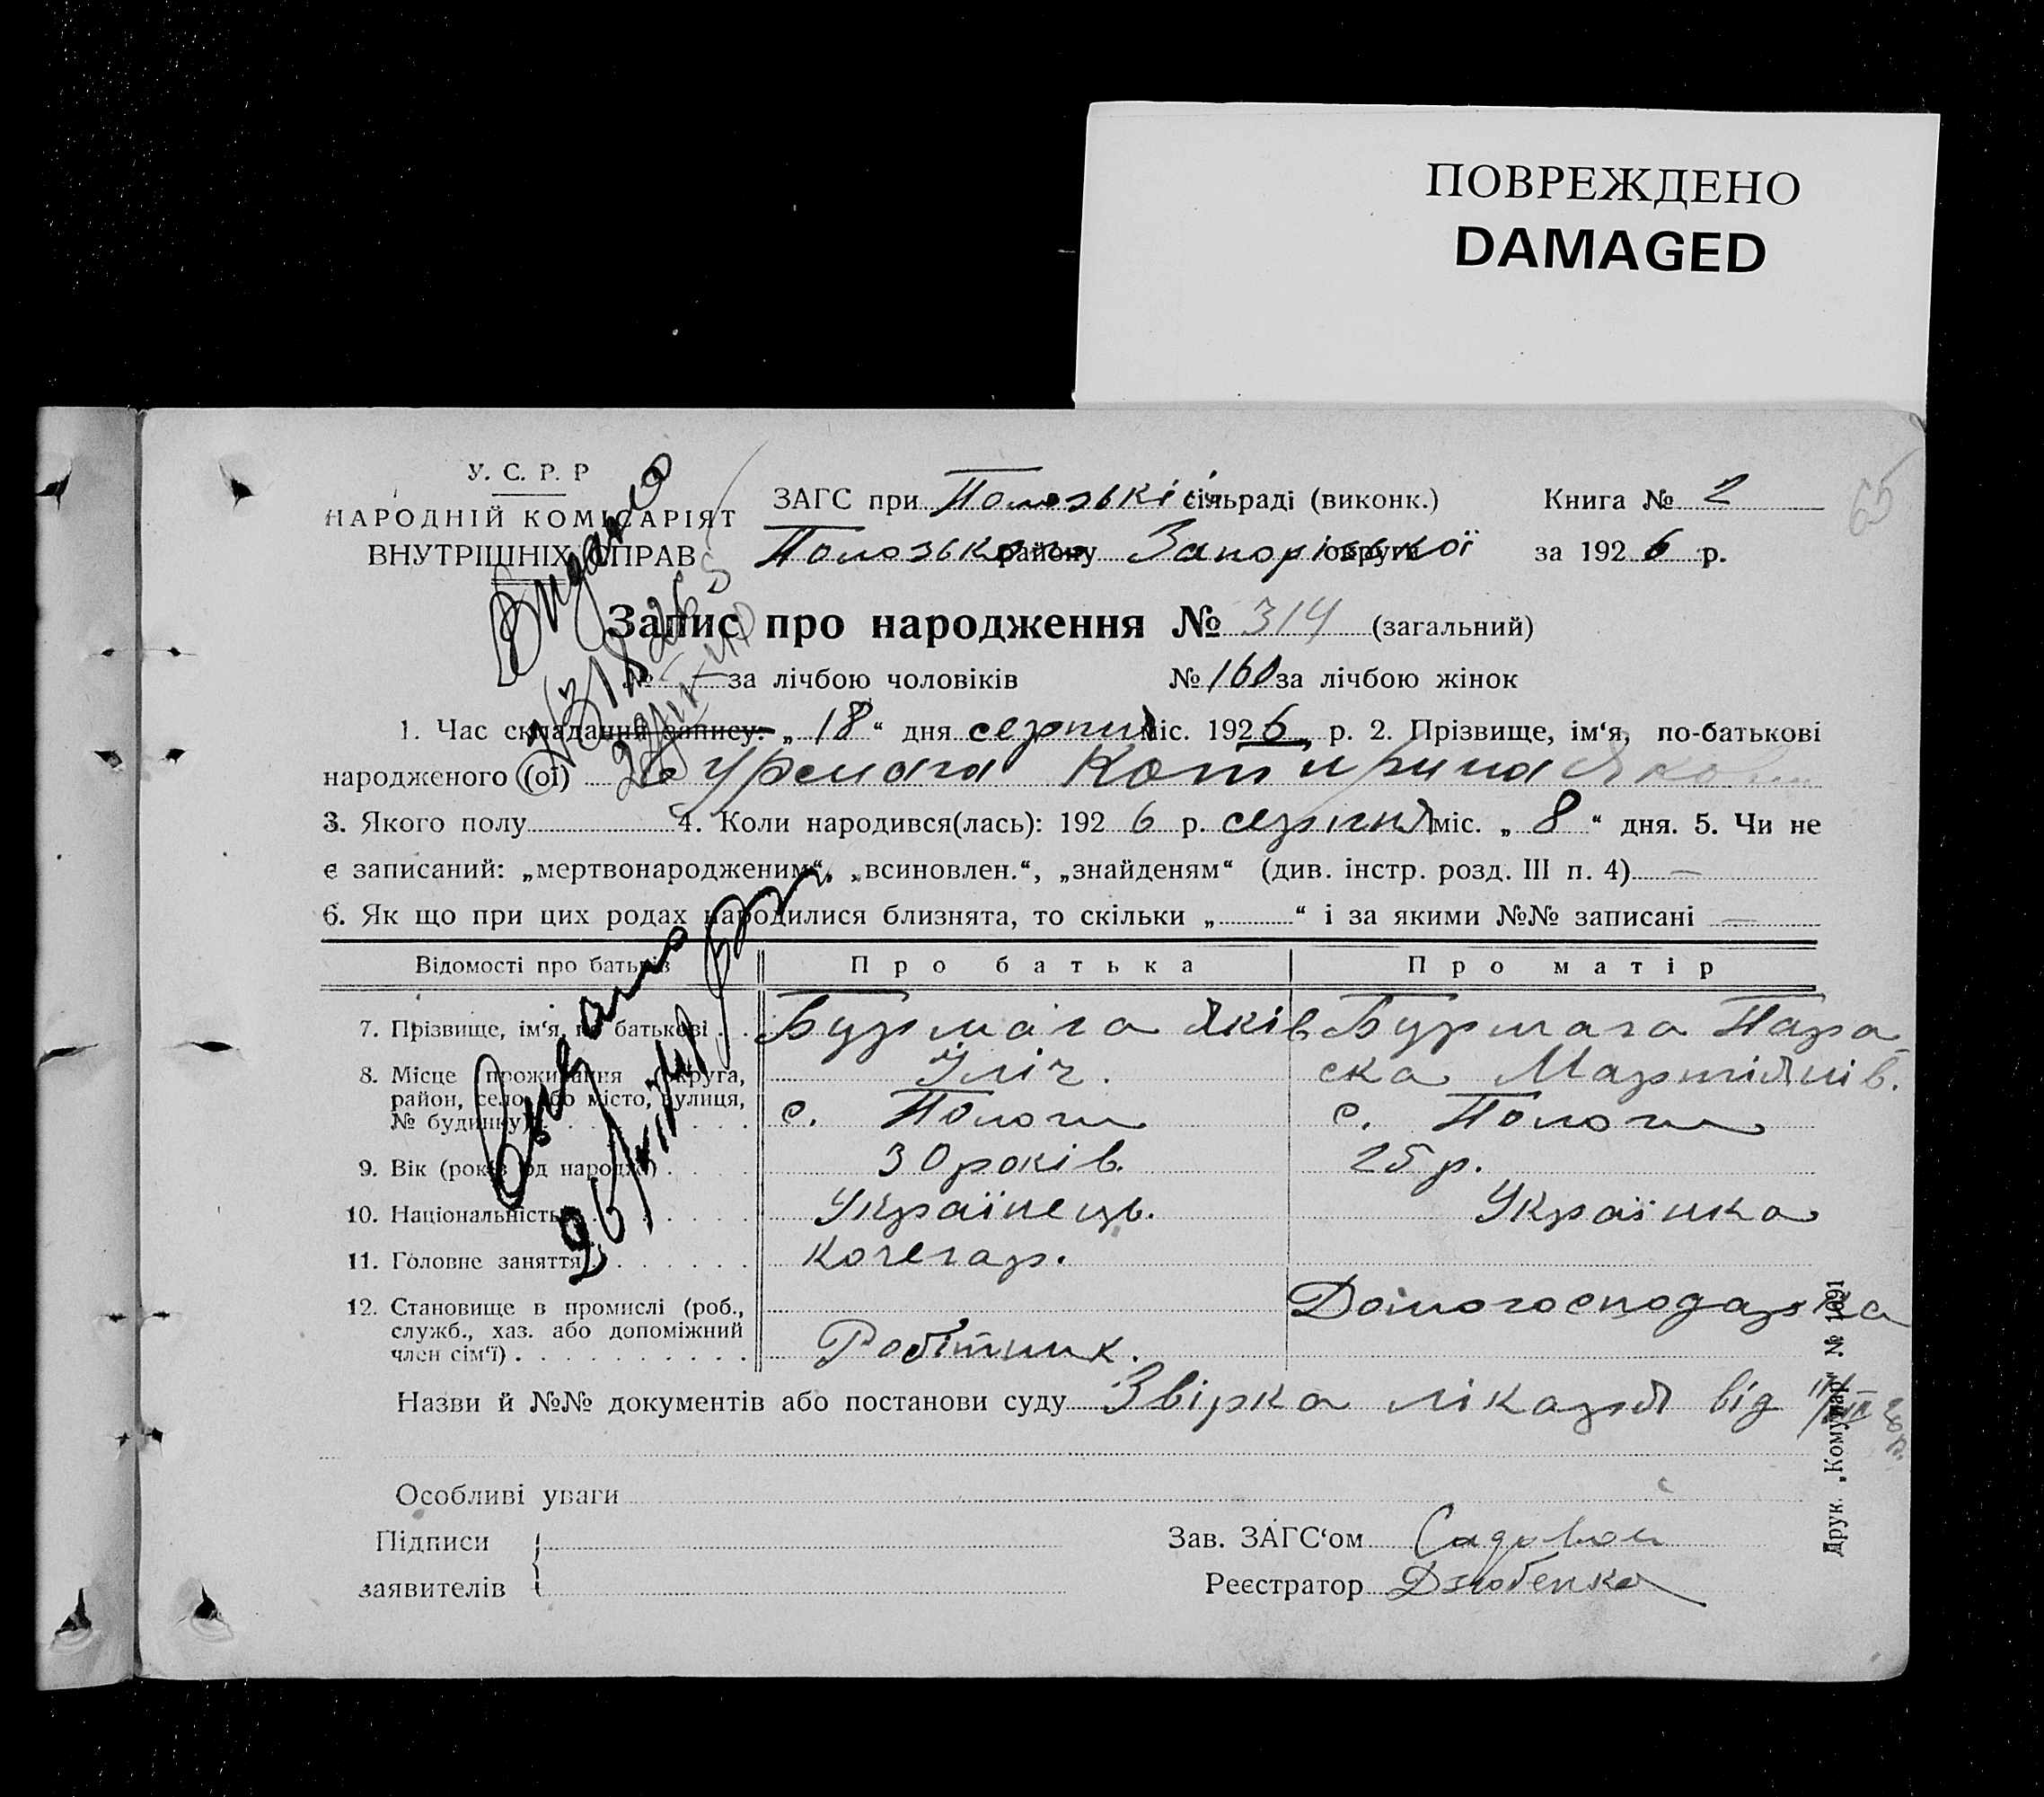 ПОВРЕЖДЕНО
DAMAGED
65
У. С. Р. Р
НАРОДНІЙ КОМІСАРІЯТ
ВНУТРІШНІХ СПРАВ
ЗАГС при Пологські сільраді (виконк.) Книга № 2
Пологського району Запоріської округи за 1926 р.
Видано
Запис про народження № 314 (загальний)
№ — за лічбою чоловіків № 160 за лічбою жінок
1. Час складання запису: „ 18 “ дня серпня міс. 1926 р. 2. Прізвище, ім‘я, по-батькові
народженого (ої) Бурмага Катирина Яков
3. Якого полу 4. Коли народився(лась): 192 6 р. серпня міс. „ 8 “ дня. 5. Чи не
є записаний: „мертвонародженим“, „всиновлен.“, „знайденям“ (див. інстр. розд. III п. 4) —
6. Як що при цих родах народилися близнята, то скільки „ “ і за якими №№ записані —
Відомості про батьків Про батька Про матір
7. Прізвище, ім‘я, по батькові . . Бурмага Яків Бурмага Пара
8. Місце проживання (округа, Іліч. ска Мартіянів.
район, село або місто, вулиця, с. Пологи с. Пологи
№ будинку)
9. Вік (років од народж.) . . . . 30 років. 25 р.
10. Національність Українець. Українка
11. Головне заняття Кочегар.
12. Становище в промислі (роб., Домогосподарка
служб., хаз. або допоміжний
член сім‘ї) Робітник.
Назви й №№ документів або постанови суду Звірка лікаря від
Особливі уваги
Підписи
заявителів
Зав. ЗАГС‘ом Садовой
Реєстратор Дзюбенко
Друк. „Комунар“ № 1091